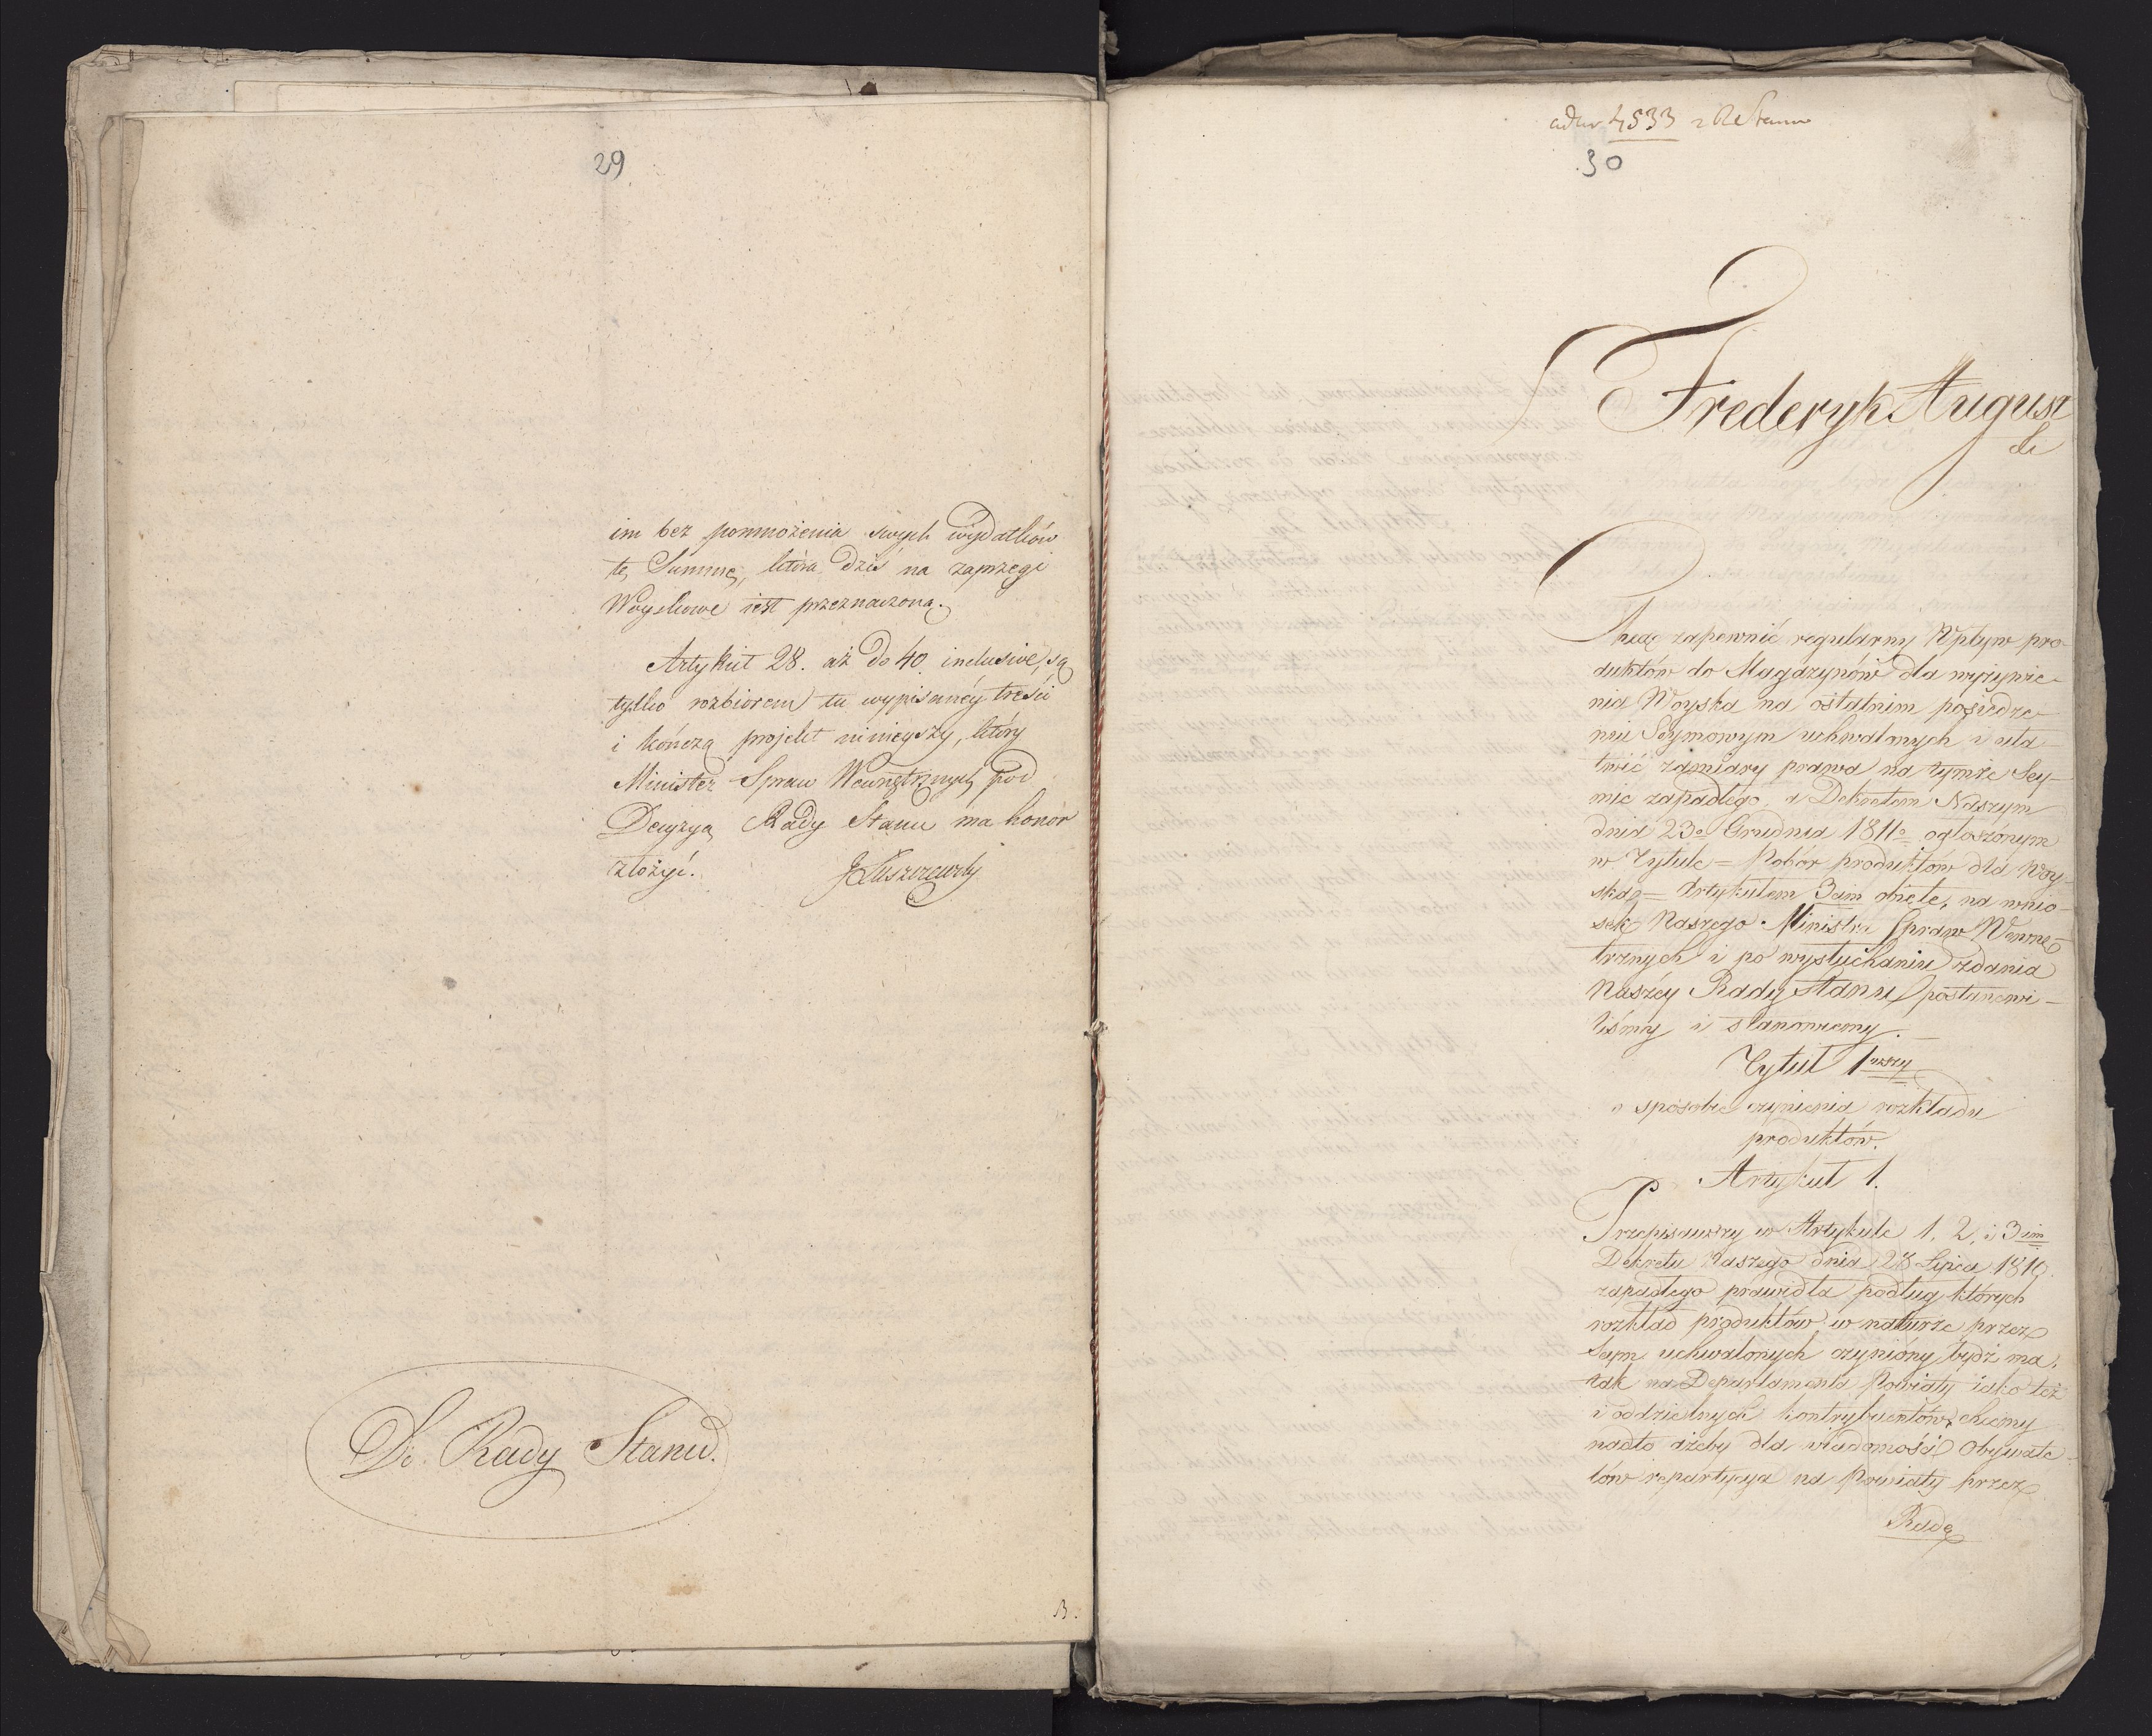 29
im bez pomnożenia swych wydatków
tę Summę, która dziś na zaprzęgi
Woyskowe iest przeznaczoną.
Artykuł 28. aż do 40 inclusive, są
tylko rozbiorem tu wypisanéy treści
i kończą projekt ninieyszy, który
Minister Spraw Wewnętrznych pod
Decyzyą Rady Stanu ma honor
złożyć. JŁuszczewsky
Do Rady Stanu.
3.
ad nr 4533 Stanu
30
Fryderyk August
&c
Chcąc zapewnić regularny Wpływ pro-
duktów do Magazynów dla wyżywie-
nia Woyska na ostatnim posiedze-
niu Seymowym uchwalonych i uła-
twić zamiary prawa na tymże Sey-
mie zapadłego, a Dekretem Naszym
dnia 23o Grudnia 1811o ogłoszonym
w Tytule = Pobór produktów dla Woy-
ska = Artykułem 3cim obięte, na wnio-
sek Naszego Ministra Spraw Wewnę-
trznych i po wysłuchaniu zdania
Naszéy Rady Stanu postanowi-
liśmy i stanowiemy.
Tytuł 1wszy
o sposobie czynienia rozkładu
produktów.
Artykuł 1.
Przepisawszy w Artykule 1, 2, i 3im
Dekretu Naszego dnia 28 Lipca 1810
zapadłego prawidła podług których
rozkład produktów w naturze przez
Seym uchwalonych czyniony bydź ma,
tak na Departamenta Powiaty iako też
i oddzielnych kontrybuentów, chcemy
nadto ażeby dla wiadomości Obywate-
lów repartycya na Powiaty przez
Radę